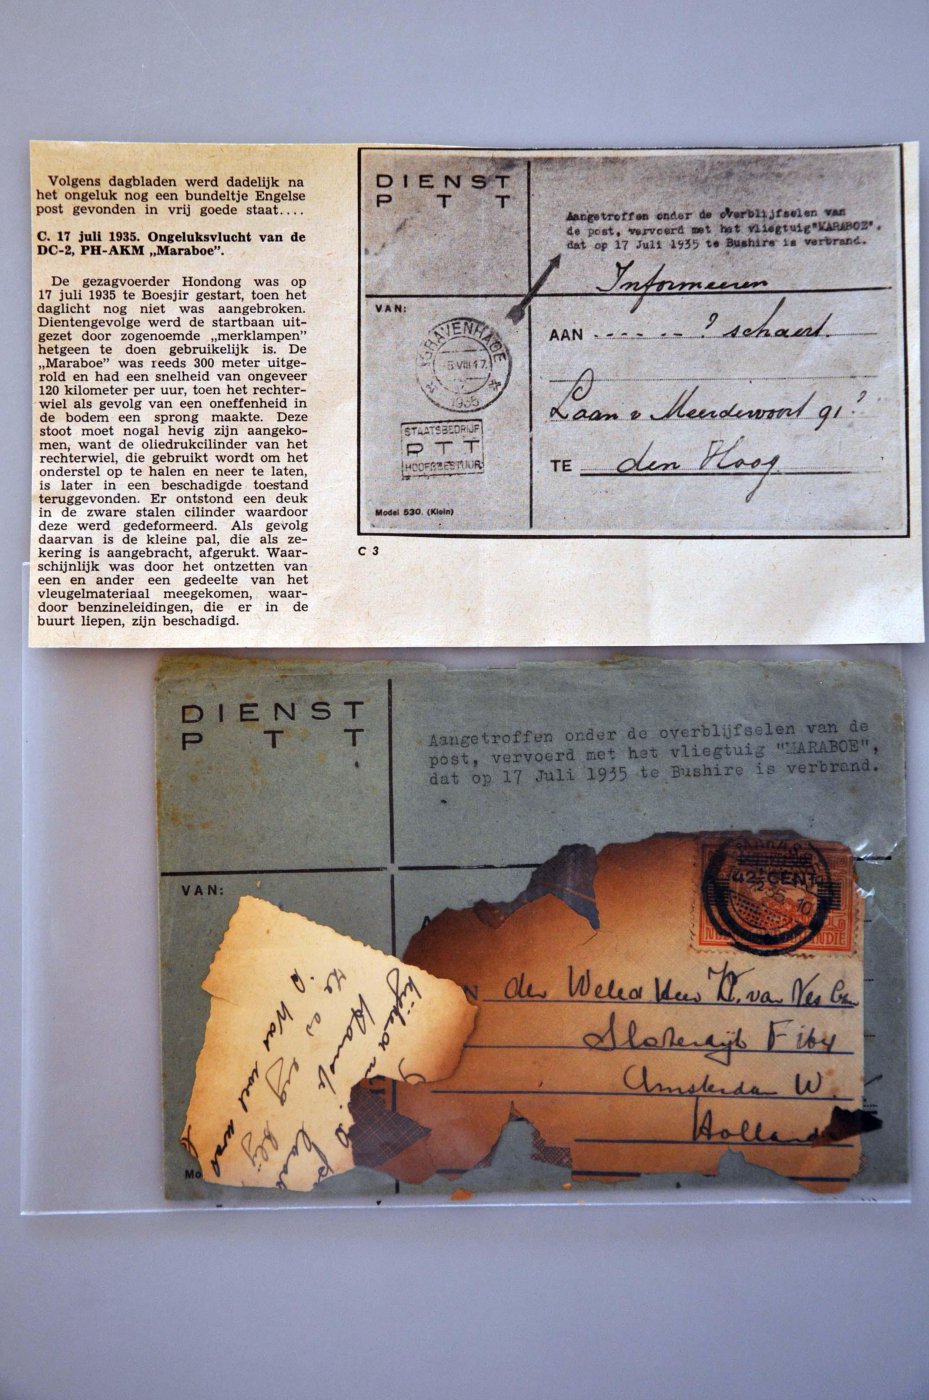 Volgens dagbladen werd dadelijk na
het ongeluk nog een bundeltje Engelse
post gevonden in vrij goede staat....
C. 17 juli 1935. Ongeluksvlucht van de
DC-2, PH-AKM „Maraboe”.
De gezagvoerder Hondong was op
17 juli 1935 te Boesjir gestart, toen het
daglicht nog niet was aangebroken.
Dientengevolge werd de startbaan uit-
gezet door zogenoemde „merklampen”
hetgeen te doen gebruikelijk is. De
„Maraboe” was reeds 300 meter uitge-
rold en had een snelheid van ongeveer
120 kilometer per uur, toen het rechter-
wiel als gevolg van een oneffenheid in
de bodem een sprong maakte. Deze
stoot moet nogal hevig zijn aangeko-
men, want de oliedrukcilinder van het
rechterwiel, die gebruikt wordt om het
onderstel op te halen en neer te laten,
is later in een beschadigde toestand
teruggevonden. Er ontstond een deuk
in de zware stalen cilinder waardoor
deze werd gedeformeerd. Als gevolg
daarvan is de kleine pal, die als ze-
kering is aangebracht, afgerukt. Waar-
schijnlijk was door het ontzetten van
een en ander een gedeelte van het
vleugelmateriaal meegekomen, waar-
door benzineleidingen, die er in de
buurt liepen, zijn beschadigd.
DIENST
PTT
Aangetroffen onder de overblijfselen van
de post, vervoerd met het vliegtuig "MARABOE",
dat op 17 Juli 1935 te Bushire is verbrand.
Informeeren
VAN:
AAN - - - - - ? schaert.
'SGRAVENHAGE
5.VIII.17
1935
Laan v Meerdervoort 91?
STAATSBEDRIJF
PTT
HOOFDBESTUUR
TE den Haag
Model 530. (Klein)
C 3
DIENST
PTT
Aangetroffen onder de overblijfselen van de
post, vervoerd met het vliegtuig "MARABOE",
dat op 17 Juli 1935 te Bushire is verbrand.
VAN:
42½ CENT
35 10
N den Weled Heer W. van Nes
Sloterdijk
Amsterdam W.
Holland
Was
Mo